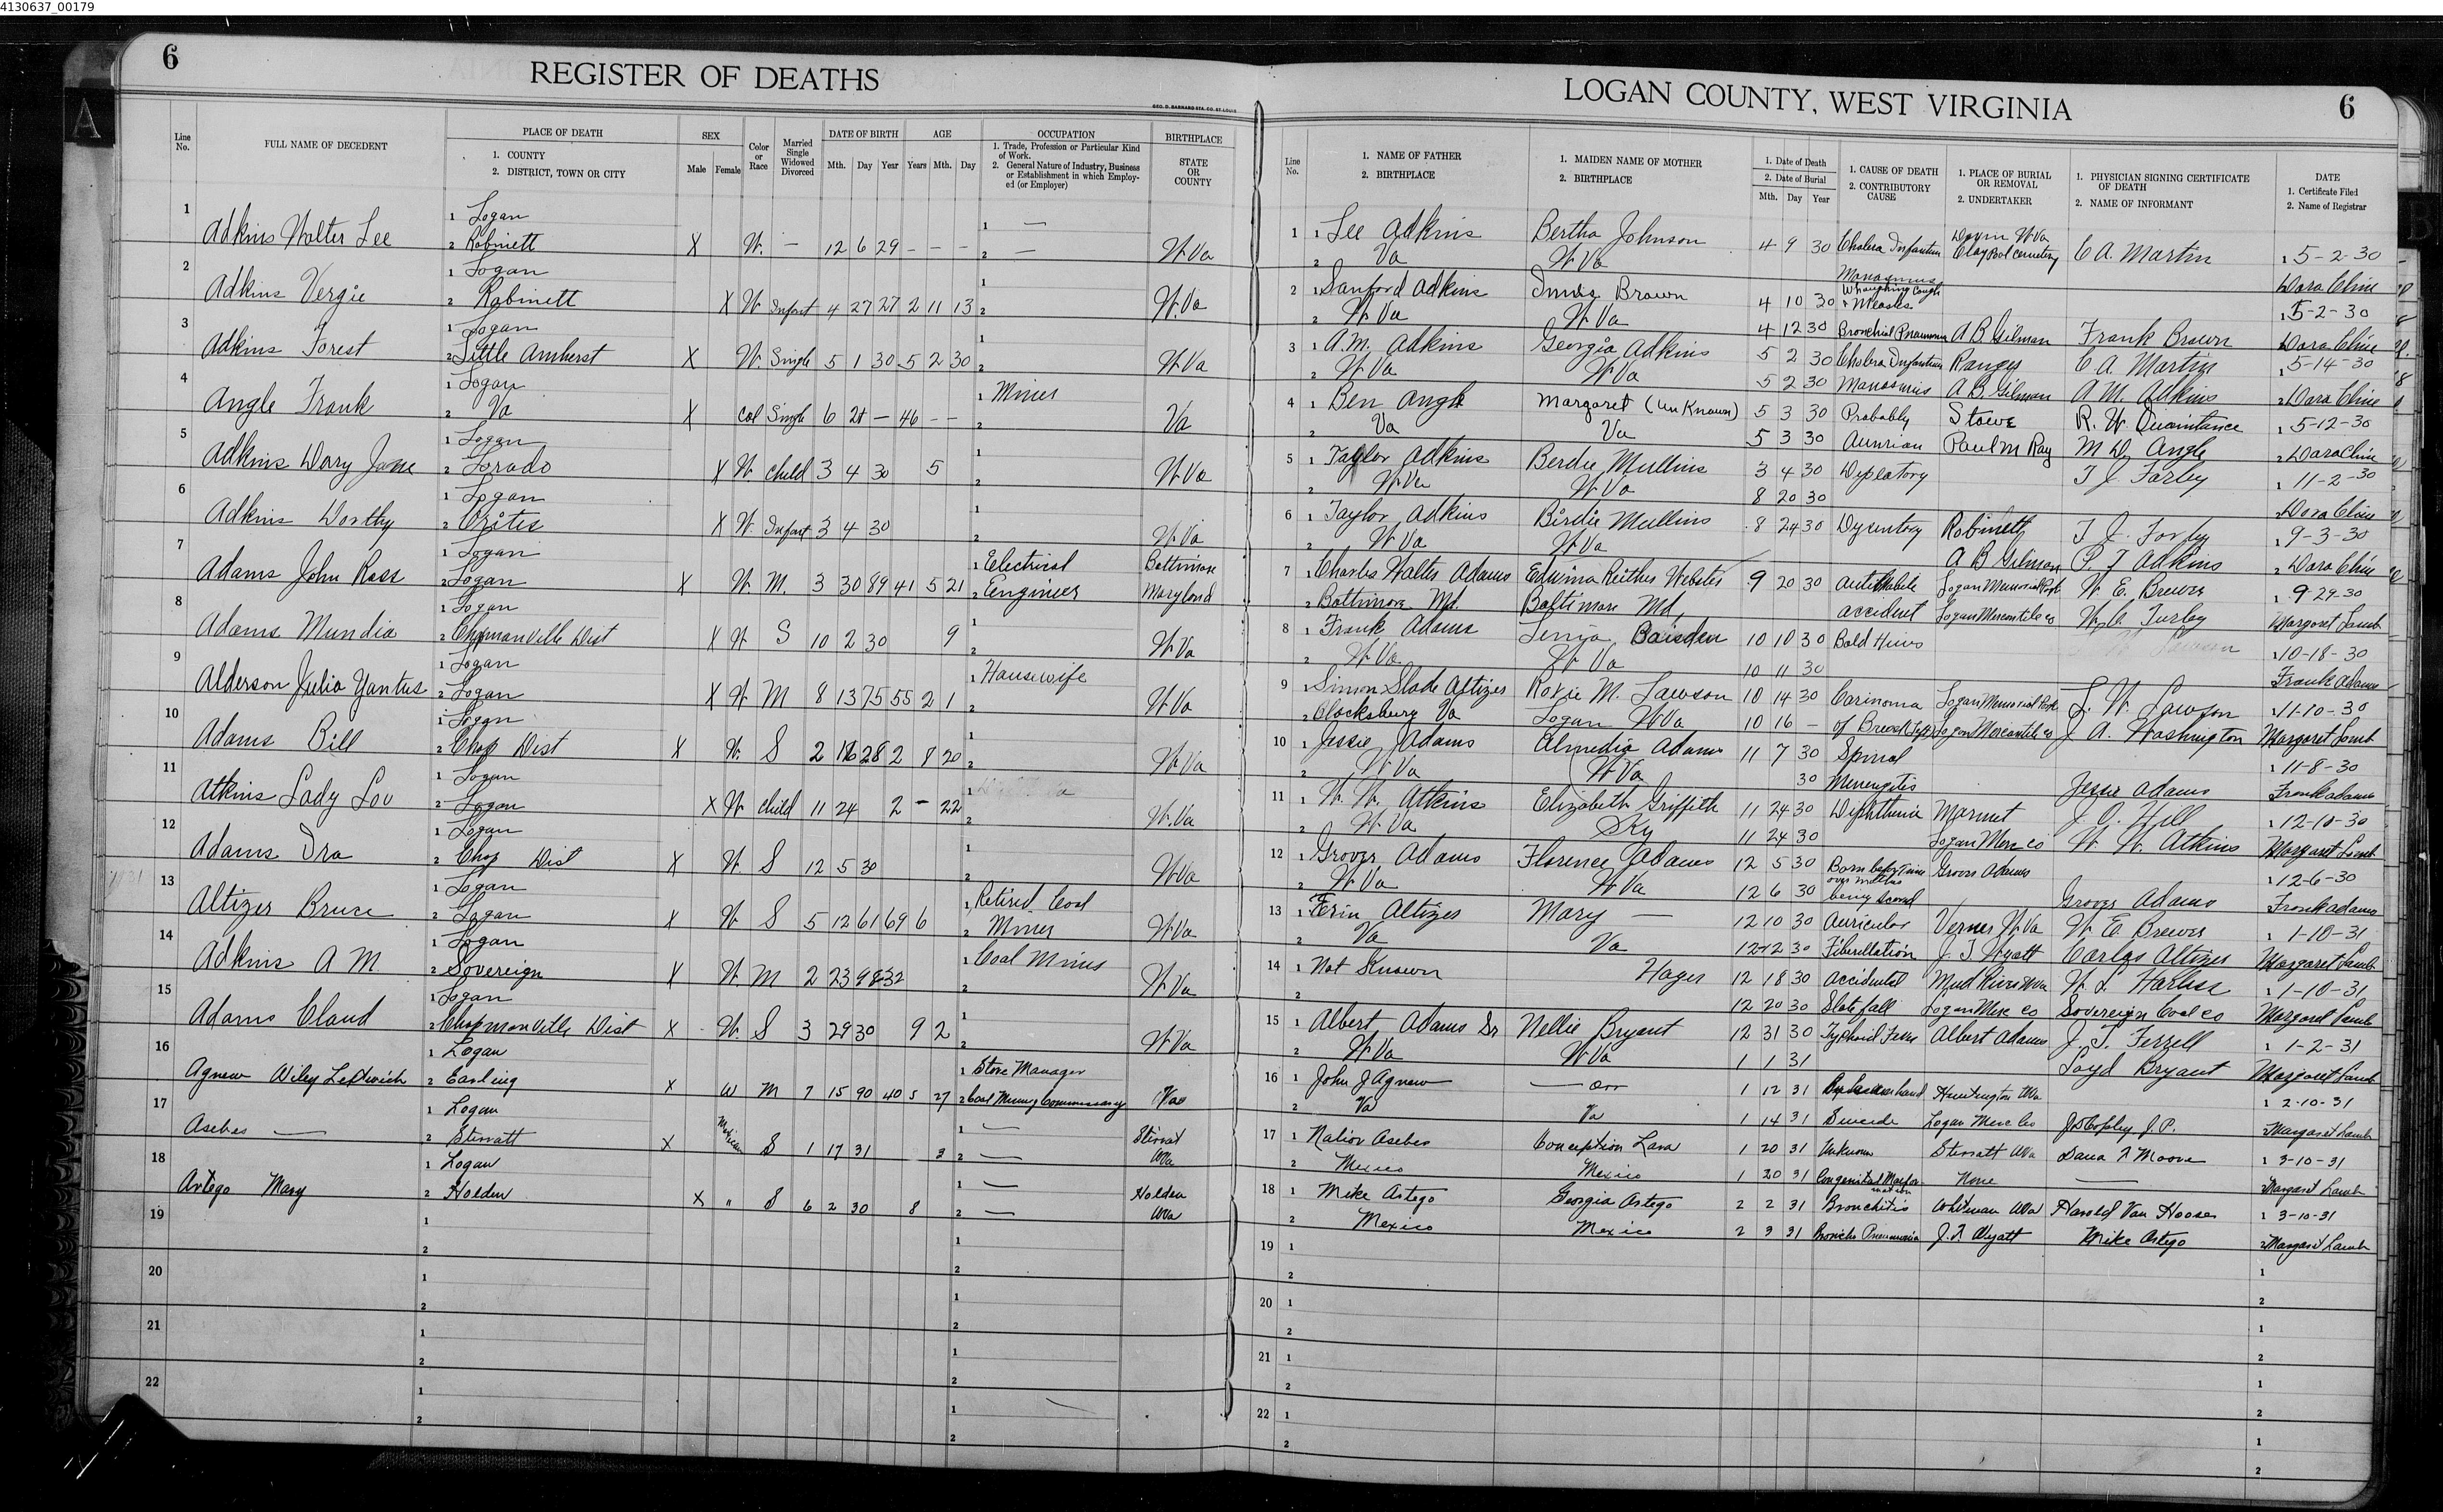 4130637_00179
6
REGISTER OF DEATHS
GEO. D. BARNARD STA. CO. ST. LOUIS
LOGAN COUNTY, WEST VIRGINIA
6
A
B
Line No. FULL NAME OF DECEDENT PLACE OF DEATH 1. COUNTY 2. DISTRICT, TOWN OR CITY SEX Male Female Color or Race Married Single Widowed Divorced DATE OF BIRTH Mth. Day Year AGE Years Mth. Day OCCUPATION 1. Trade, Profession or Particular Kind of Work. 2. General Nature of Industry, Business or Establishment in which Employed (or Employer) BIRTHPLACE STATE OR COUNTY
Line No. 1. NAME OF FATHER 2. BIRTHPLACE 1. MAIDEN NAME OF MOTHER 2. BIRTHPLACE 1. Date of Death 2. Date of Burial Mth. Day Year 1. CAUSE OF DEATH 2. CONTRIBUTORY CAUSE 1. PLACE OF BURIAL OR REMOVAL 2. UNDERTAKER 1. PHYSICIAN SIGNING CERTIFICATE OF DEATH 2. NAME OF INFORMANT DATE 1. Certificate Filed 2. Name of Registrar
1 Adkins Walter Lee 1 Logan 2 Robinett X W. – 12 6 29 - - - 1 — 2 — W Va
2 Adkins Vergie 1 Logan 2 Robinett X W. Infant 4 27 27 2 11 13 1 2 W.Va
3 Adkins Forest 1 Logan 2 Little Amherst X W. Single 5 1 30 5 2 30 1 2 W Va
4 Angle Frank 1 Logan 2 Va X Col Single 6 21 — 46 - - 1 Miner 2 Va
5 Adkins Dory Jane 1 Logan 2 Lorado X W child 3 4 30 5 1 2 W Va
6 Adkins Dorthy 1 Logan 2 Crites X W. Infant 3 4 30 1 2 W Va
7 Adams John Ross 1 Logan 2 Logan X W. M. 3 30 89 41 5 21 1 Electrical 2 Engineer Baltimore Maryland
8 Adams Mundia 1 Logan 2 Chapmanville Dist X W S 10 2 30 9 1 2 W Va
9 Alderson Julia Yantus 1 Logan 2 Logan X W M 8 13 75 55 2 1 1 Housewife 2 W Va
10 Adams Bill 1 Logan 2 Chap Dist X W. S 2 16 28 2 8 20 1 2 W Va
11 Atkins Lady Lou 1 Logan 2 Logan X W child 11 24 2 - 22 1 2 W.Va
12 Adams Ira 1 Logan 2 Chap Dist X W. S 12 5 30 1 2 W Va
13 Altizer Bruce 1 Logan 2 Logan X W S 5 12 61 69 6 1 Retired Coal 2 Miner W Va
14 Adkins A M 1 Logan 2 Sovereign X W M 2 23 98 32 1 Coal Mines 2 W Va
15 Adams Claud 1 Logan 2 Chapmanville Dist X W. S 3 29 30 9 2 1 2 W Va
16 Agnew Wiley Leftwich 1 Logan 2 Earling X W M 7 15 90 40 5 27 1 Store Manager 2 Coal Mining Commissary Va
17 Asebes — 1 Logan 2 Stirratt X Mexican S 1 17 31 3 1 — 2 — Stirrat WVa
18 Artego Mary 1 Logan 2 Holden X " S 6 2 30 8 1 — 2 — Holden WVa
19 1 2
20 1 2
21 1 2
22 1 2
1 1 Lee Adkins 2 Va Bertha Johnson W Va 4 9 30 Cholera Infantum Claypool Cemetery C A. Martin 1 5-2-30 Dora Cline
2 1 Sanford Adkins 2 W Va Brown W Va 4 10 30 Whouping Cough & Measles 4 12 30 Bronchial Pneumonia A B Gilman Frank Brown 1 5-2-30 Dora Cline
3 1 A.M. Adkins 2 W Va Georgia Adkins W Va 5 2 30 Cholera Infantum Ranger C A. Martin 1 5-14-30 5 2 30 Marasmus A B. Gilman A M. Adkins 2 Dora Cline
4 1 Ben Angle 2 Va Margaret (UnKnown) Va 5 3 30 Probably Stowe R. W. Quaintance 1 5-12-30 5 3 30 Paul M Ray M D Angle 2 Dora Cline
5 1 Taylor Adkins 2 W Va Berdie Mullins W Va 3 4 30 T J Farley 1 11-2-30 8 20 30 2 Dora Cline
6 1 Taylor Adkins 2 W Va Birdie Mullins W Va 8 24 30 Dysentory Robinett T J. Farley 1 9-3-30 A B Gilman P. T Adkins 2 Dora Cline
7 1 Charles Walter Adams 2 Baltimore Md. Edwina Reither Webster Baltimore Md, 9 20 30 accident Logan Memorial Park W E. Brewer 1 9-29-30 Logan Mercantile co W. C. Turley Margaret Lamb
8 1 Frank Adams 2 W Va Baisden W Va 10 10 30 Bold Hives 1 10-18-30 10 11 30 Frank Adams
9 1 Simon Slade Altizer 2 Blacksburg Va Roxie M. Lawson Logan W Va 10 14 30 Carinoma Logan Memorial Park L. W. Lawson 1 11-10-30 10 16 – of Breast Logan Mercantile co J A. Washington Margaret Lamb
10 1 Jessie Adams 2 W Va Almedia Adams W Va 11 7 30 Spinal 1 11-8-30 30 Menengitis Jessie Adams Frank Adams
11 1 W. W. Atkins 2 W Va Elizabeth Griffith Ky 11 24 30 Diphtheria Marmet J. O. Hill 1 12-10-30 11 24 30 Logan Merc co W. W. Atkins Margaret Lamb
12 1 Grover Adams 2 W Va Florence Adams W Va 12 5 30 Born before Time Grover Adams 1 12-6-30 12 6 30 Grover Adams Frank Adams
13 1 Ferin Altizer 2 Va Mary — Va 12 10 30 Auricular Verner W Va W E. Brewer 1 1-10-31 12 12 30 Fiberillation J. T Wyatt Carlos Altizer Margaret Lamb
14 1 Not Known 2 Hager 12 18 30 Accidental W L. Harless 1 1-10-31 12 20 30 Slate fall Logan Merc co Sovereign Coal co Margaret Lamb
15 1 Albert Adams Sr 2 W Va Nellie Bryant W Va 12 31 30 Typhoid Fever Albert Adams J. T. Ferrell 1 1-2-31 1 1 31 Loyd Bryant Margaret Lamb
16 1 John J Agnew 2 Va — Orr Va 1 12 31 Huntington WVa 1 2-10-31 1 14 31 Suicide Logan Merc Co J D Copley J.P. 2 Margaret Lamb
17 1 Nation Asebes 2 Mexico Conception Lara Mexico 1 20 31 Unknown Stirratt WVa Dana T Moore 1 3-10-31 1 20 31 Congenital Malformation None — 2 Margaret Lamb
18 1 Mike Artego 2 Mexico Georgia Artego Mexico 2 2 31 Bronchitis Whitman WVa Harold Van Hoose 1 3-10-31 2 3 31 Broncho Pneumonia J. T Wyatt Mike Artego 2 Margaret Lamb
19 1 2 1 2
20 1 2 1 2
21 1 2 1 2
22 1 2 1 2